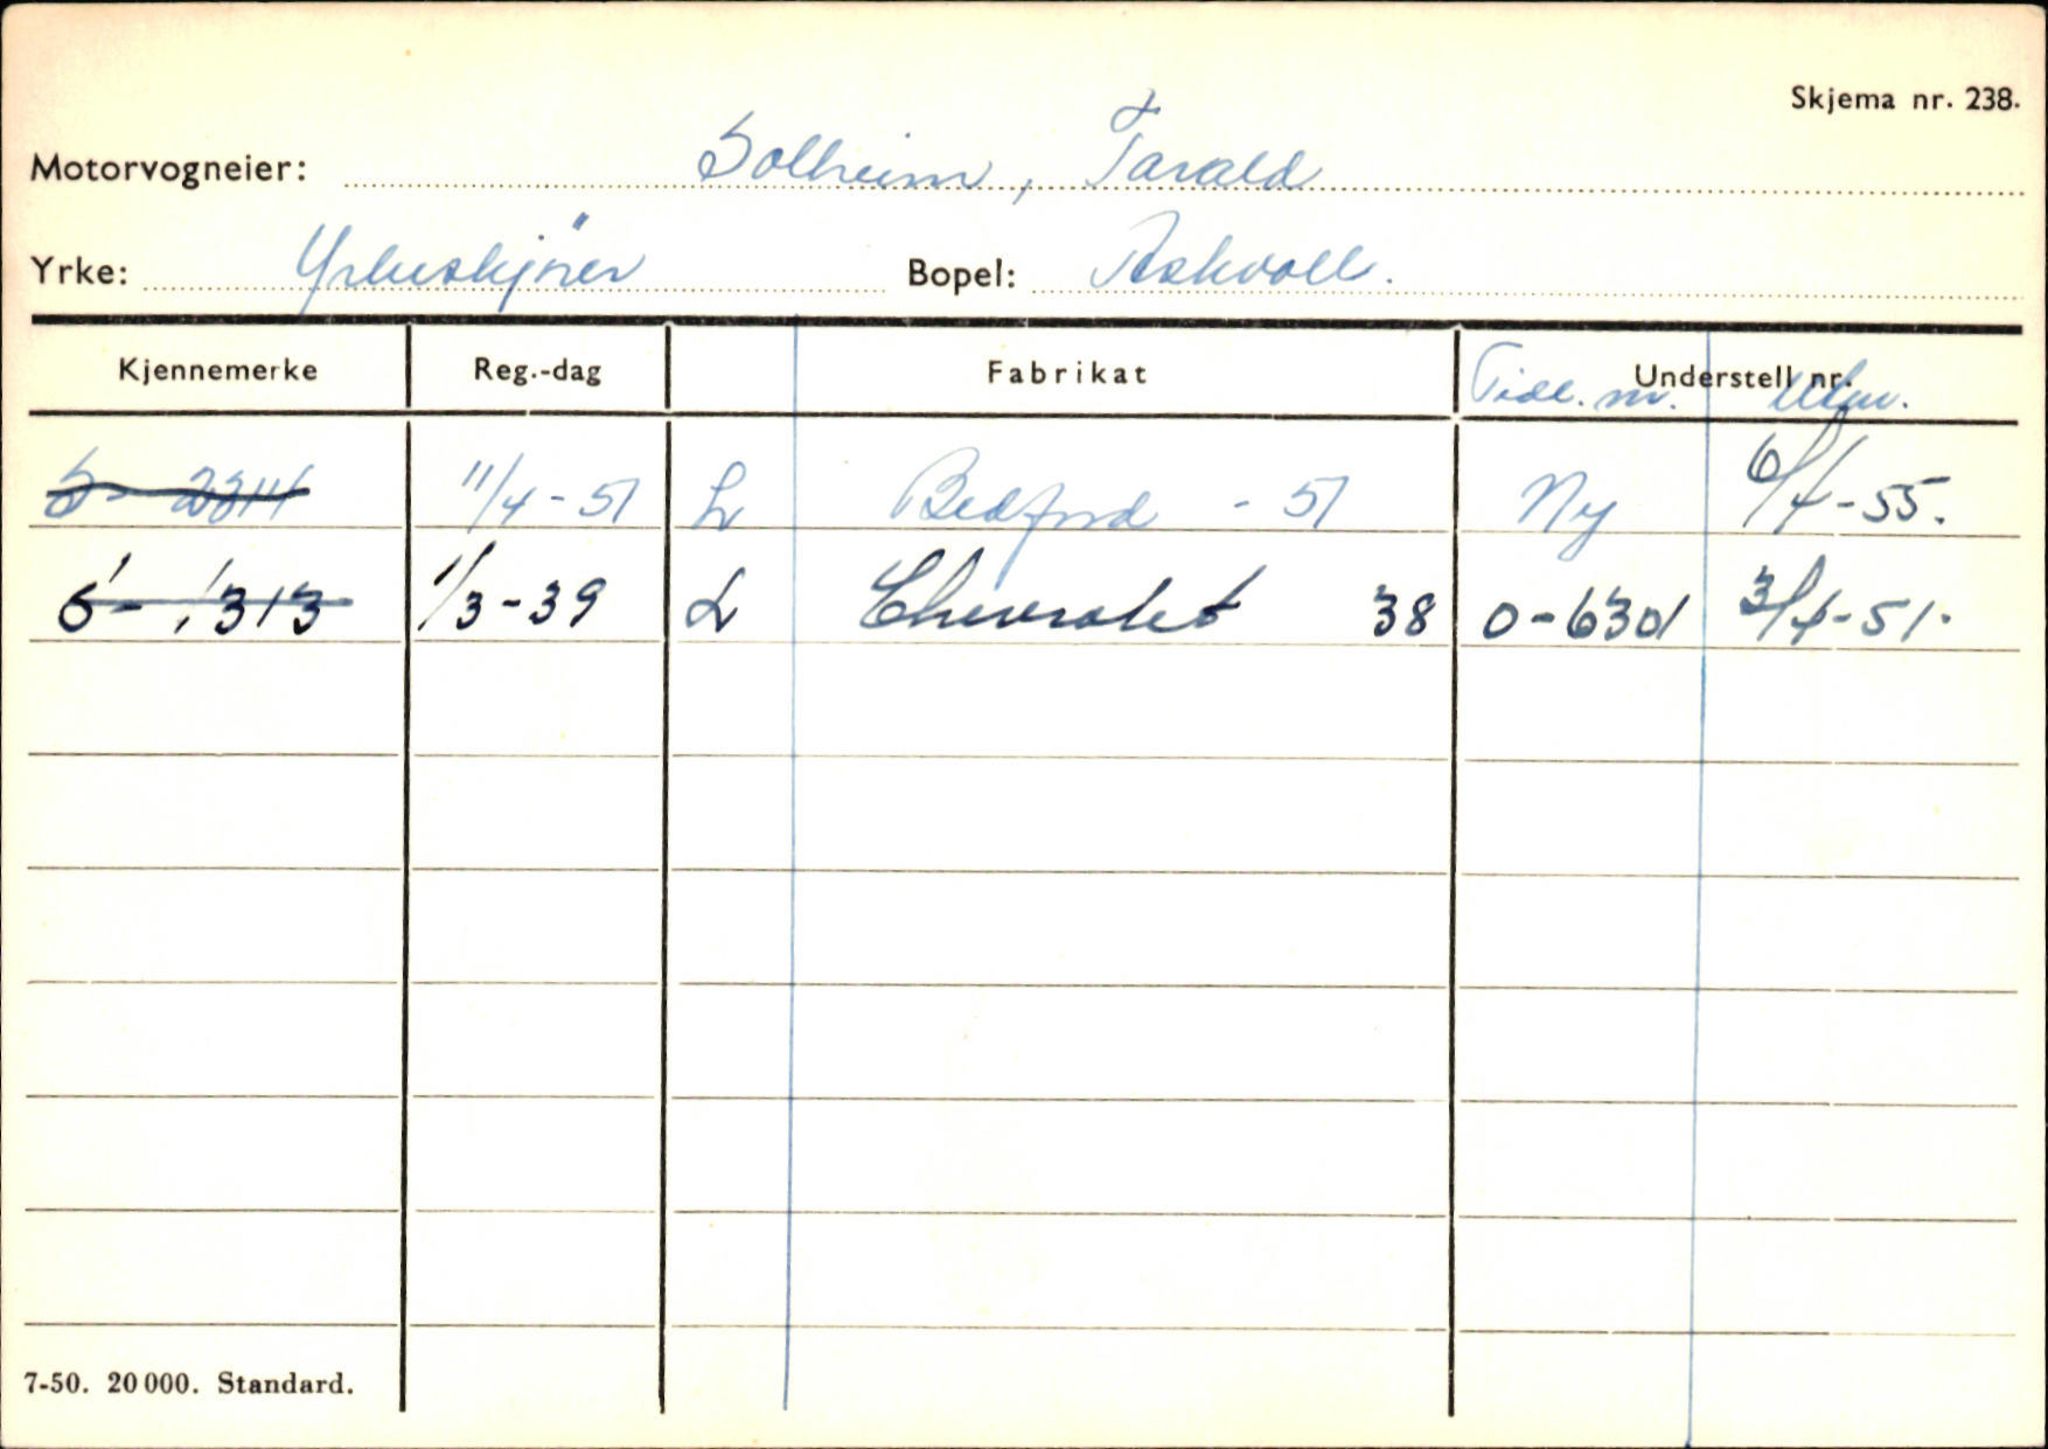 Skjema nr. 238.
Motorvogneier: Solheim, Tarald
Yrke: Yrkeskjörer Bopel: Askvoll.
Kjennemerke Reg.-dag Fabrikat Understell nr.
Tidl. nr. Utm.
S- 11/4-51 L Bedford - 51 Ny 6/4-55.
S- 1313 1/3-39 L Chevrolet 38 O-6301 3/4-51.
7-50. 20 000. Standard.